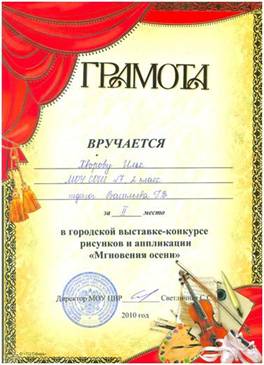 ГРАМОТА
ВРУЧАЕТСЯ
Яворову Илье
МОУ СОШ 2 класс
Васильева Г.В
за II место
в городской выставке-конкурсе
рисунков и аппликации
«Мгновения осени»
Директор МОУ ЦВР Светличная С.
2010 год